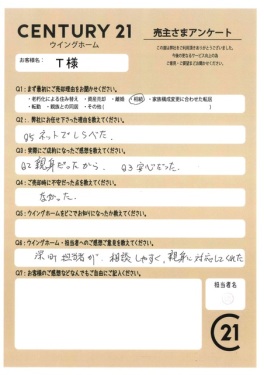 CENTURY 21
ウイングホーム
売主さまアンケート
この度は弊社をご利用頂きありがとうございました。
今後の更なるサービス向上の為
ご意見・ご要望などお聞かせください。
お客様名:
T様
Q1:まず最初にご売却理由をお聞かせください。
・老朽化による住み替え ・資産売却 ・離婚 ・相続 ・家族構成変更に合わせた転居
・転勤 ・親族との同居 ・その他(
Q2: 弊社にお任せ下さった理由を教えてください。
Q5 ネットでしらべた.
Q3:実際にご成約になったご感想を教えてください。
Q2 親身だったから. Q3 安心だった.
Q4:ご売却時に不安だった点を教えてください。
なかった.
Q5:ウイングホームをどこでお知りになったか教えてください。
Q6:ウイングホーム・担当者へのご感想ご意見を教えてください。
担当者が 相談しやすく, 親身に対応してくれた
Q7:お客様のご感想などなんでもご自由にご記入ください。
担当者名
C21